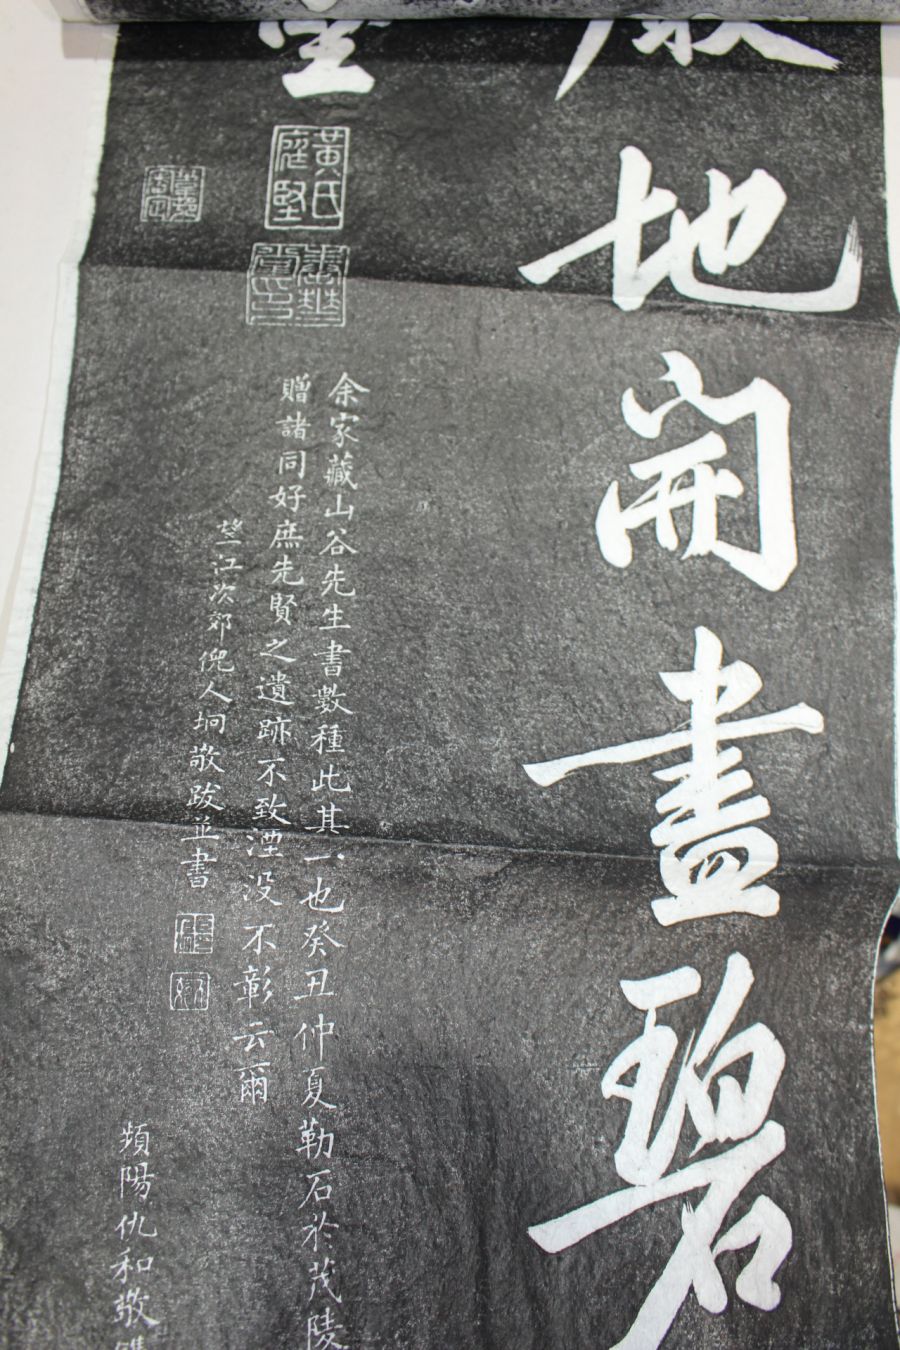 地開畫碧
堅
黃氏庭堅
余家藏山谷先生書數種此其一也癸丑仲夏勒石於茂陵
贈諸同好庶先賢之遺跡不致湮沒不彰云爾
望江次郊倪人坰敬跋並書
頻陽仇和敬